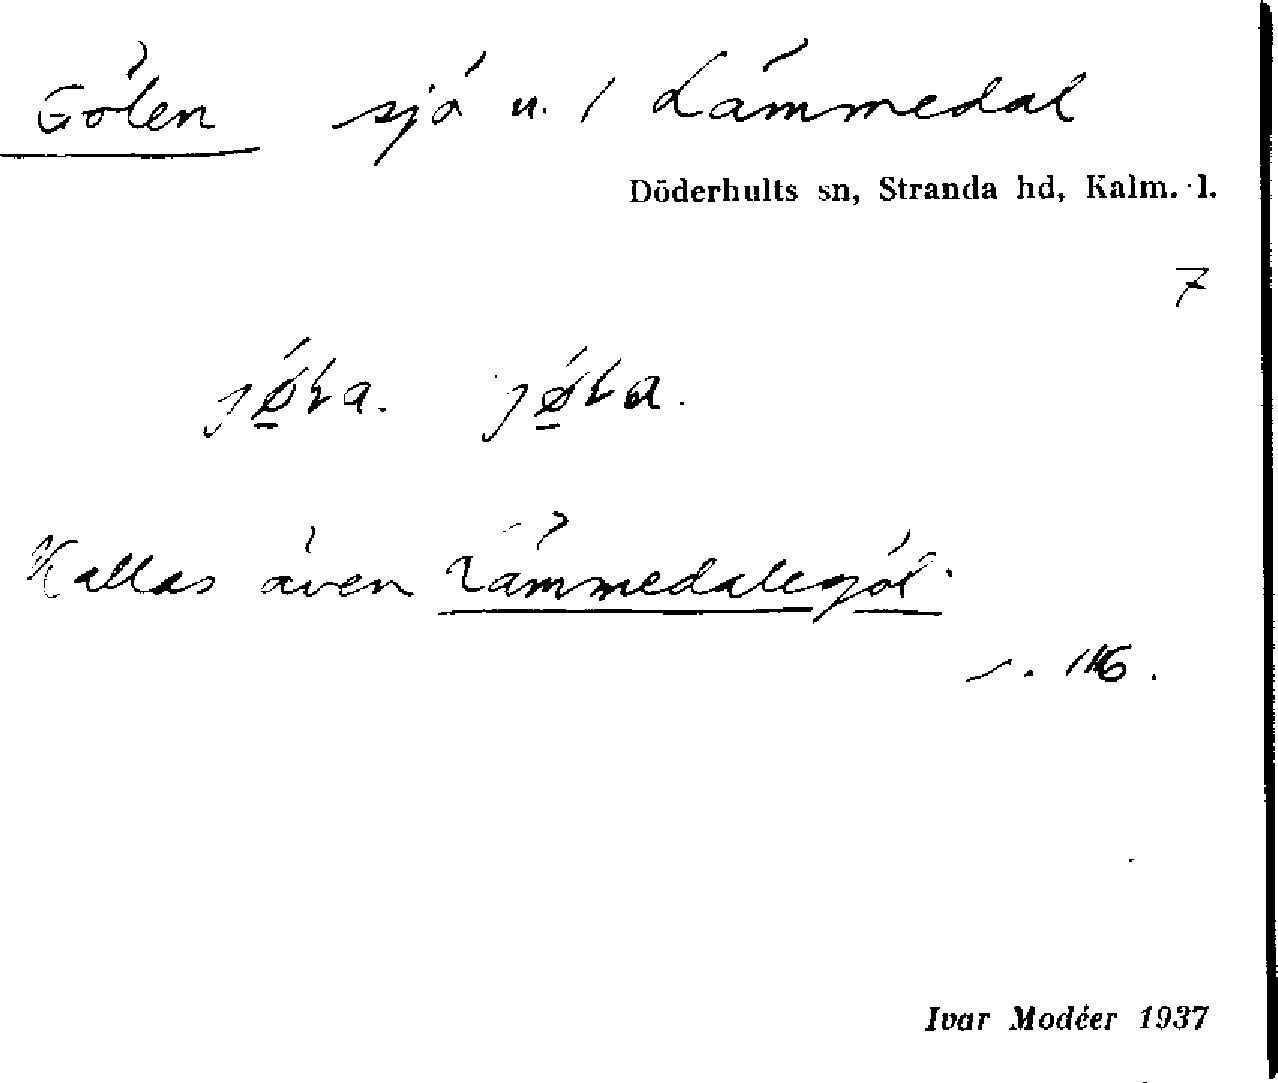 Gölen sjö u. / Lämmedal
Döderhults sn, Stranda hd, Kalm. l.
7
Kallas även Lämmedalegöl.
s. 116.
Ivar Modéer 1937